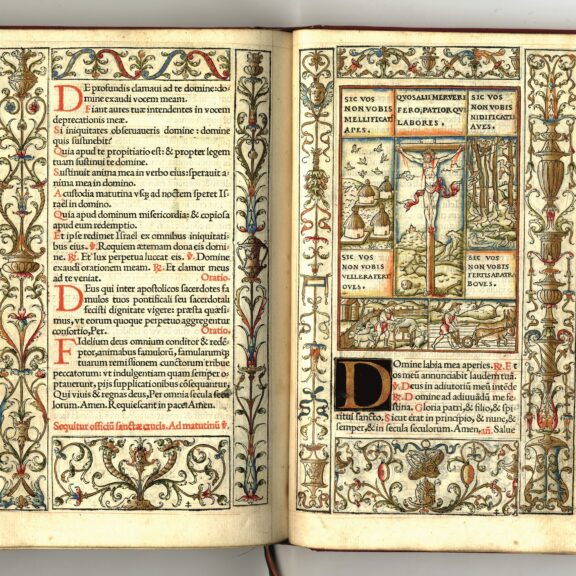 De profundis clamaui ad te domine: do-
mine exaudi vocem meam.
Fiant aures tuæ intendentes in vocem
deprecationis meæ.
Si iniquitates obseruaueris domine: domine
quis sustinebit?
Quia apud te propitiatio est: & propter legem
tuam sustinui te domine.
Sustinuit anima mea in verbo eius: sperauit a-
nima mea in domino.
A custodia matutina vsq; ad noctem speret Is-
raël in domino.
Quia apud dominum misericordia: & copiosa
apud eum redemptio.
Et ipse redimet Israël ex omnibus iniquitati-
bus eius. ℣. Requiem æternam dona eis domi-
ne. ℟. Et lux perpetua luceat eis. ℣. Domine
exaudi orationem meam. ℟. Et clamor meus
ad te veniat. Oratio.
Deus qui inter apostolicos sacerdotes fa-
mulos tuos pontificali seu sacerdotali
fecisti dignitate vigere: præsta quæsu-
mus, vt eorum quoque perpetuo aggregentur
consortio, Per. Oratio.
Fidelium deus omnium conditor & redé-
ptor, animabus famulorū, famularumq;
tuarum remissionem cunctorum tribue
peccatorum: vt indulgentiam quam semper o-
ptauerunt, piis supplicationibus cōsequātur,
Qui viuis & regnas deus, Per omnia secula secu
lorum. Amen. Requiescant in pace. Amen.
Sequitur officiū sanctæ crucis. Ad matutinū ℣.
SIC VOS
NON VOBIS
MELLIFICATI
APES.
QVOS ALII MERVERE
FERO, PATIOR QVI
LABORES.
SIC VOS
NON VOBIS
NIDIFICATIS
AVES.
SIC VOS
NON VOBIS
VELLERA FERTI
OVES.
SIC VOS
NON VOBIS
FERTIS ARATRA
BOVES.
Domine labia mea aperies. ℟. Et
os meū annunciabit laudem tuā.
℣. Deus in adiutoriū meū intēde
℟. Domine ad adiuuādū me fe-
stina. Gloria patri, & filio, & spi-
ritui sancto. Sicut erat in principio, & nunc, &
semper, & in secula seculorum. Amen. añ. Salue